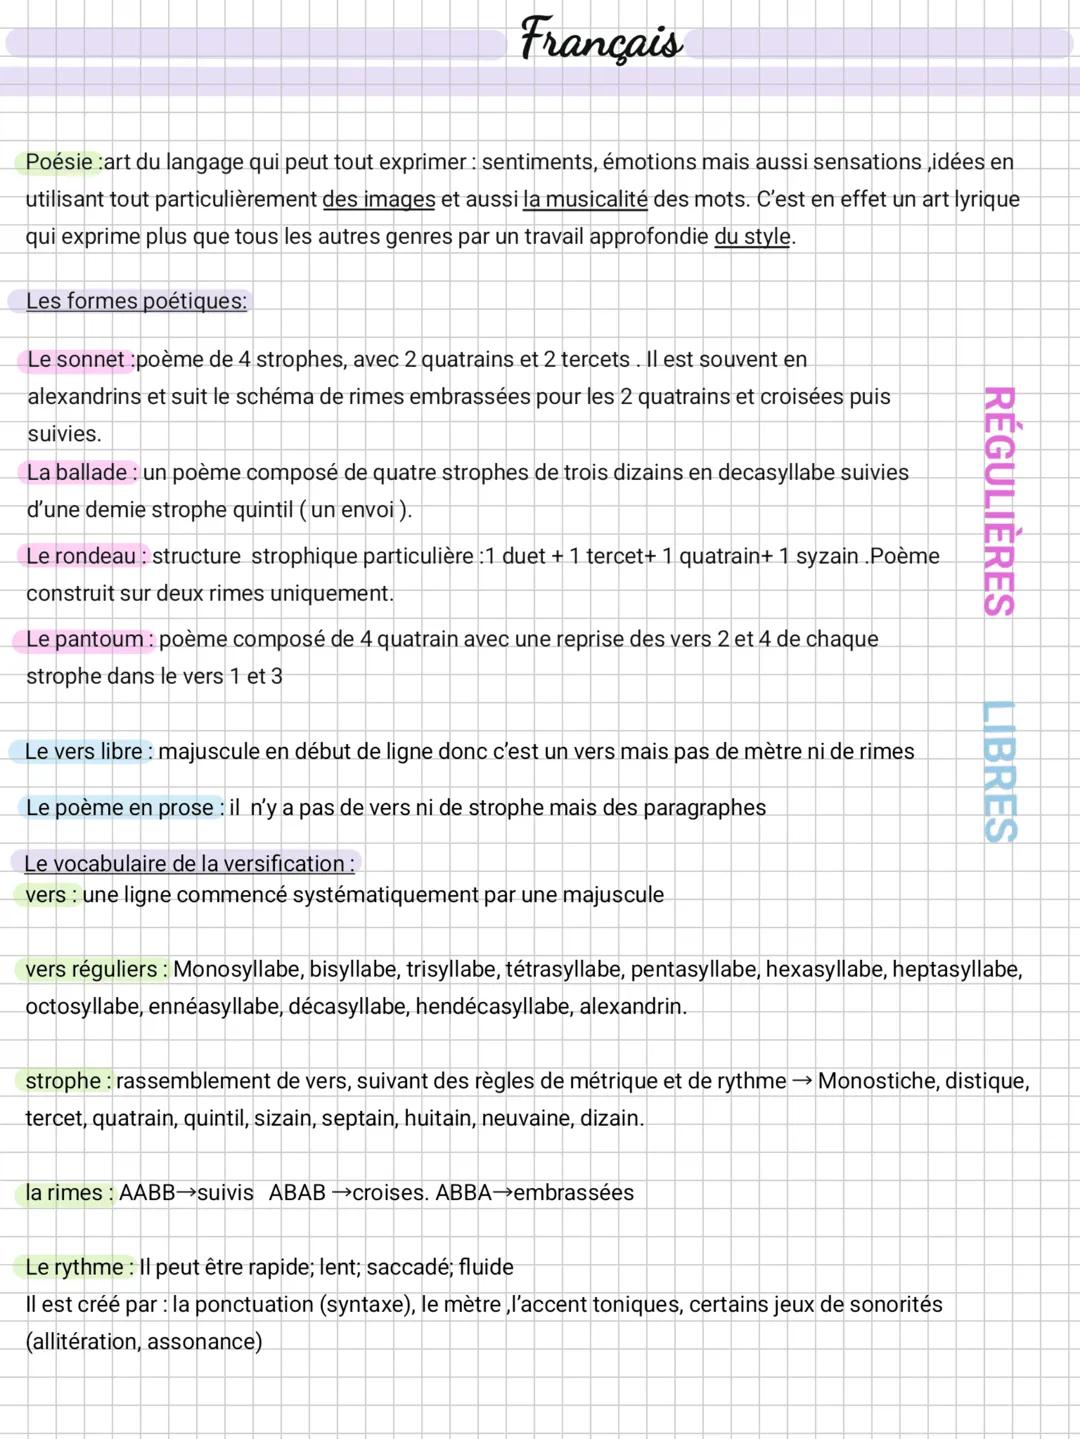 Français
Poésie :art du langage qui peut tout exprimer : sentiments, émotions mais aussi sensations ,idées en
utilisant tout particulièrement des images et aussi la musicalité des mots. C’est en effet un art lyrique
qui exprime plus que tous les autres genres par un travail approfondie du style.
Les formes poétiques:
Le sonnet :poème de 4 strophes, avec 2 quatrains et 2 tercets . Il est souvent en
alexandrins et suit le schéma de rimes embrassées pour les 2 quatrains et croisées puis
suivies.
La ballade : un poème composé de quatre strophes de trois dizains en decasyllabe suivies
d’une demie strophe quintil ( un envoi ).
Le rondeau : structure strophique particulière :1 duet + 1 tercet+ 1 quatrain+ 1 syzain .Poème
construit sur deux rimes uniquement.
Le pantoum : poème composé de 4 quatrain avec une reprise des vers 2 et 4 de chaque
strophe dans le vers 1 et 3
RÉGULIÈRES
Le vers libre : majuscule en début de ligne donc c’est un vers mais pas de mètre ni de rimes
Le poème en prose : il n’y a pas de vers ni de strophe mais des paragraphes
LIBRES
Le vocabulaire de la versification :
vers : une ligne commencé systématiquement par une majuscule
vers réguliers : Monosyllabe, bisyllabe, trisyllabe, tétrasyllabe, pentasyllabe, hexasyllabe, heptasyllabe,
octosyllabe, ennéasyllabe, décasyllabe, hendécasyllabe, alexandrin.
strophe : rassemblement de vers, suivant des règles de métrique et de rythme → Monostiche, distique,
tercet, quatrain, quintil, sizain, septain, huitain, neuvaine, dizain.
la rimes : AABB→suivis ABAB →croises. ABBA→embrassées
Le rythme : Il peut être rapide; lent; saccadé; fluide
Il est créé par : la ponctuation (syntaxe), le mètre ,l’accent toniques, certains jeux de sonorités
(allitération, assonance)